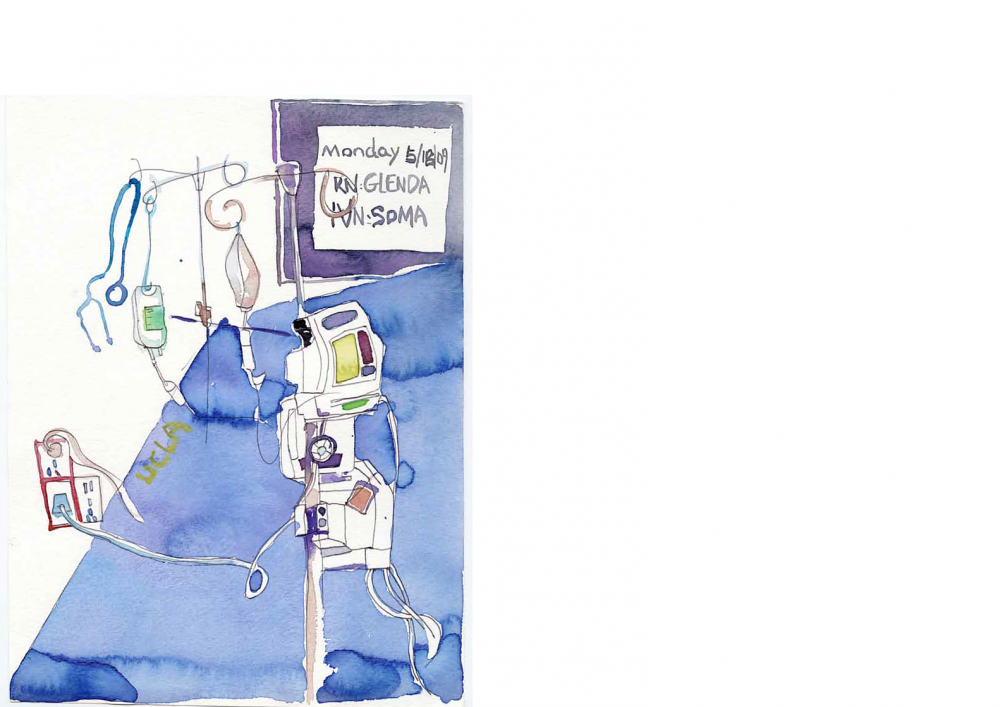 Monday 5/18/09
RN:GLENDA
LVN:SOMA
UCLA